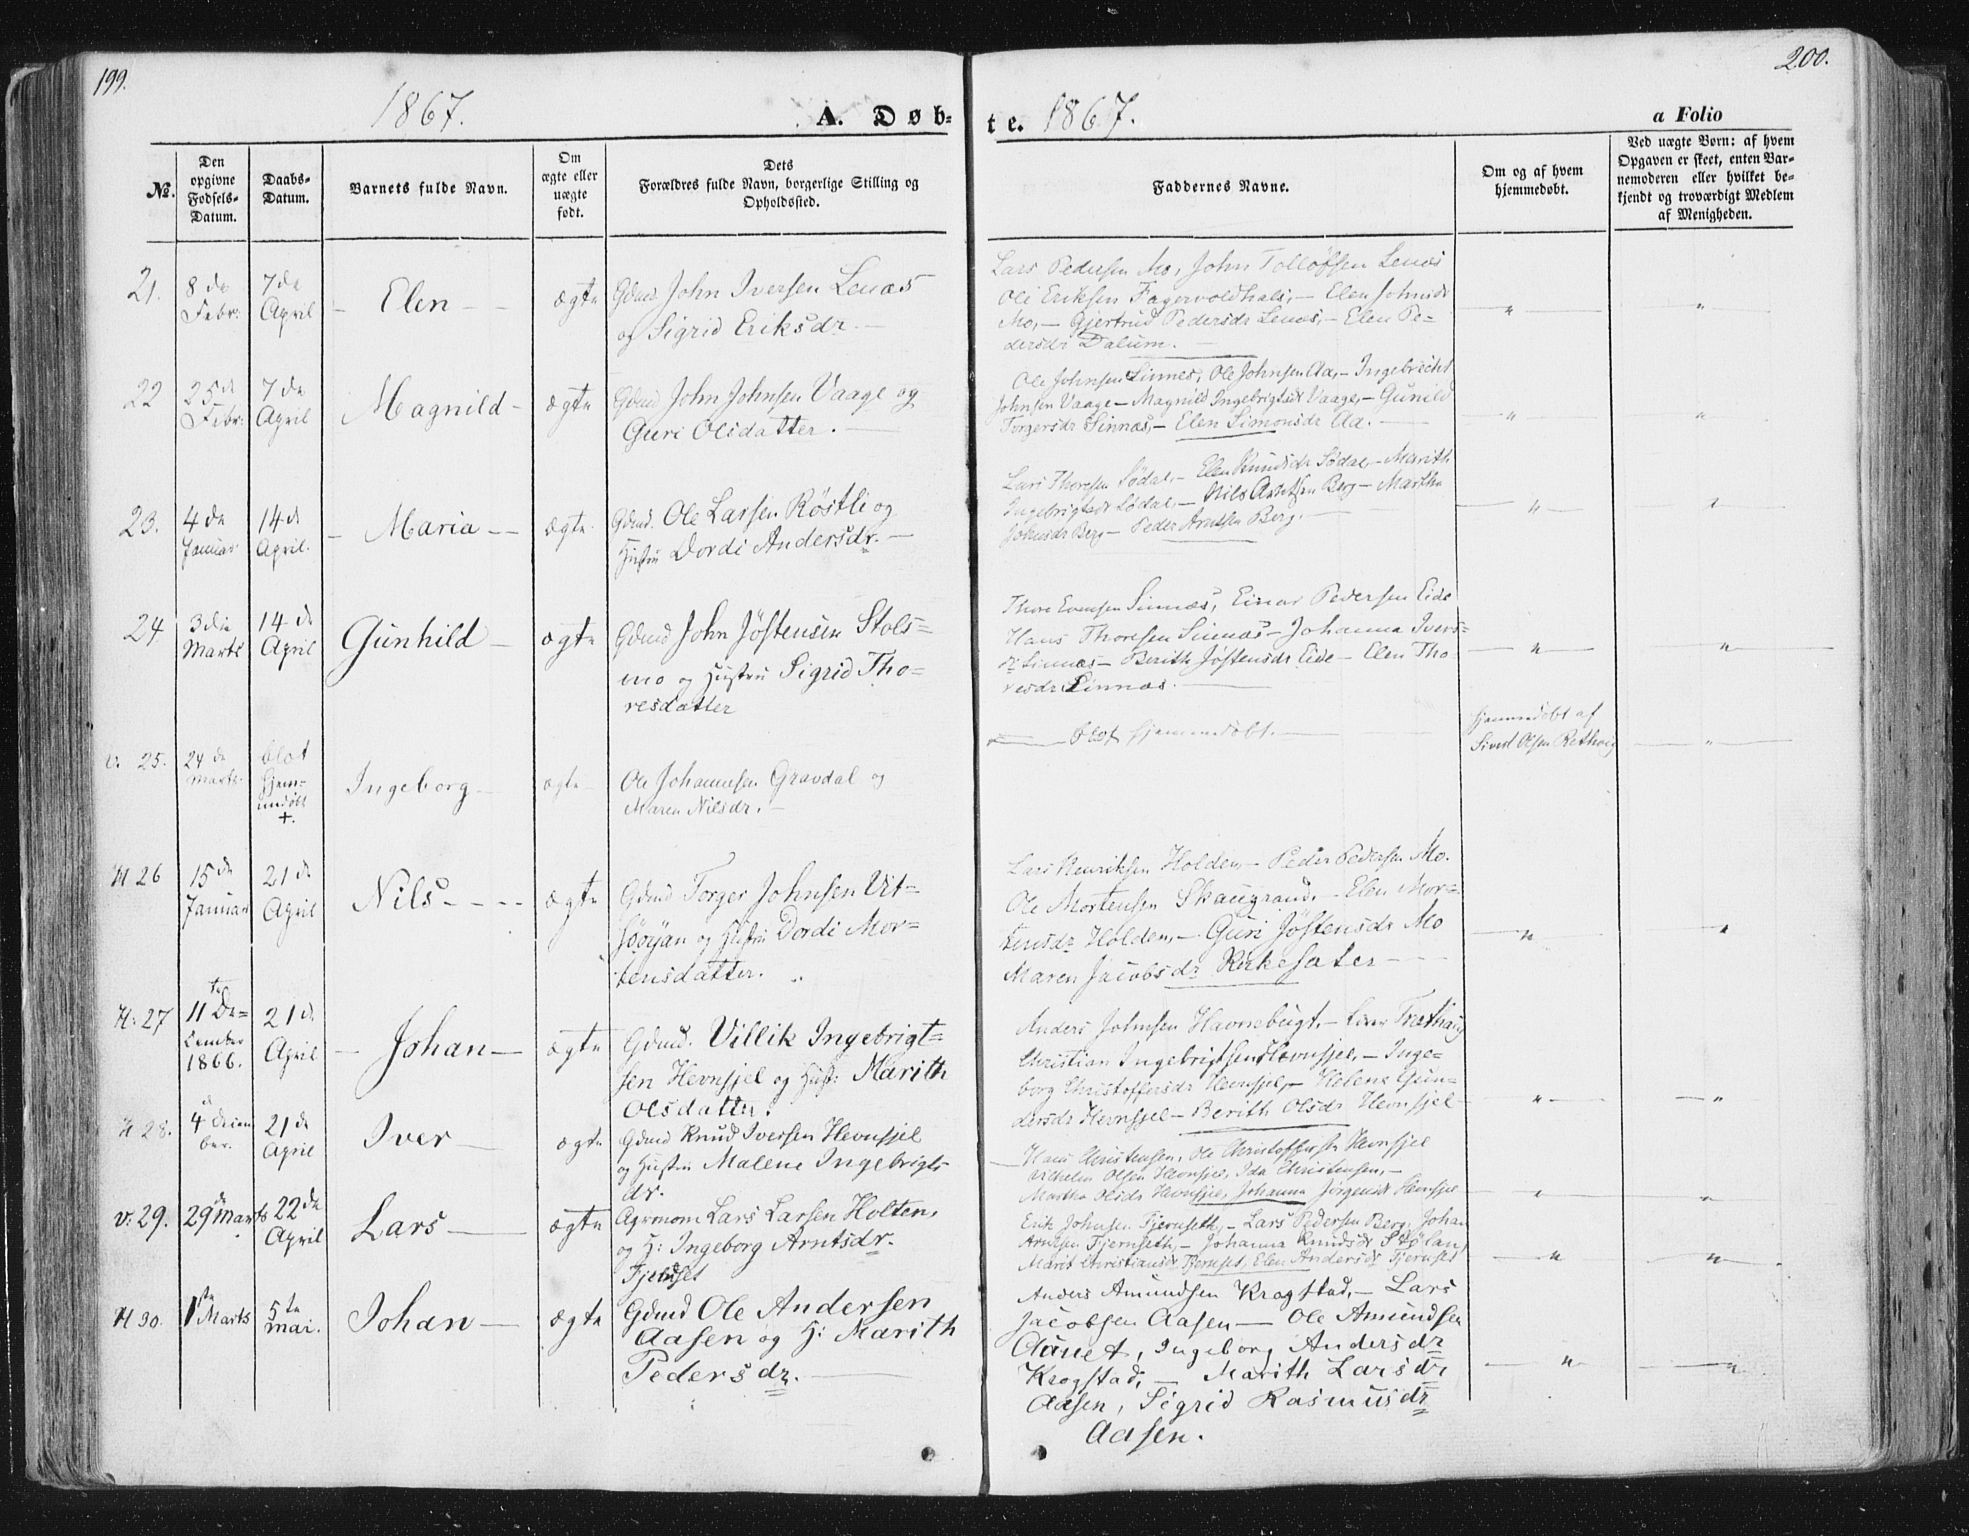 199.
1867.
A. Døb-
te. 1867.
200.
a Folio
№.
Den opgivne Fødsels-Datum.
Daabs-Datum.
Barnets fulde Navn.
Om ægte eller uægte født.
Dets Forældres fulde Navn, borgerlige Stilling og Opholdssted.
Faddernes Navne.
Om og af hvem hjemmedøbt.
Ved uægte Børn: af hvem Opgaven er skeet, enten Barnemoderen eller hvilket bekjendt og troværdigt Medlem af Menigheden.
21. 8de Febr: 7de April – Elen – ægte
Gdmd John Iversen Lenæs
og Sigrid Eriksdr. –
Lars Pedersen Mo, John Tollofsen Lenæs
Ole Eriksen Fagervoldhals, – Elen Johnsdr
Mo, – Gjertrud Pedersdr Lenæs, – Elen Pe-
dersdr Dalum. –
22 25de Febr: 7de April Magnild – ægte
Gdmd John Johnsen Vaage og
Guri Olsdatter. –
Ole Johnsen Sinnes, Ole Johnsen Aa, – Ingebrecht
Johnsen Vaage – Magnild Ingebrigtsdr Vaage, – Gunild
Torgersdr Sinnæs, – Elen Simonsdr Aa. –
23. 4de Januar 14de April. – Maria – ægte
Gdmd. Ole Larsen Röstli og
Hustru Dordi Andersdr. –
Lars Thoresen Södal, – Elen Knudsdr Södal, – Marith
Ingebrigtsdr Södal – Nils Arntsen Berg – Martha
Johnsdr Berg – Peder Arntsen Berg. –
24 3die Marts 14de April Gunhild – ægte
Gdmd John Jöstensen Stols-
mo og Hustru Sigrid Tho-
resdatter
Thore Evensen Sinnæs, Einar Pedersen Eide
Hans Thoresen Sinnæs – Johanna Ivers-
dr Sinnæs – Berith Jöstensdr Eide – Elen Tho-
resdr Sinnæs. –
v. 25. 24de Marts. blot hjem-
medöbt
+.
Ingeborg – ægte
Ole Johannesen Gravdal og
Maren Nilsdr. –
blot hjemmedöbt. –
hjemmedöbt af
Sivert Olsen
H 26 15de Januar 21de April Nils – – – – ægte
Gdmd Torger Johnsen Vit-
sööyan og Hustru Dordi Mor-
tensdatter.
Lars Henriksen Holden, – Peder Pedersen Mo.
Ole Mortensen Skaugrand. – Elen Mor-
tensdr Holden, – Guri Jöstensdr Mo
Maren Jacobsdr Kirkesæter –
H: 27 11te De-
cember
1866. 21de April – Johan – ægte
Gdmd. Villik Ingebrigt-
sen Hevnsjel og Hust: Marith
Olsdatter.
Anders Johnsen Havnebugt, –
Christian Ingebrigtsen Hevnsjel, – Inge-
borg Christoffersdr Hevnsjel, – Helene Gun-
dersdr Hevnsjel – Berith Olsdr Hevnsjel
H 28. 4de Decem
ber. 21de April Iver – ægte
Gdmd Knud Iversen Hevnsjel
og Hustru Malene Ingebrigts
dr.
Hans Christensen, Ole Christoffersen Hevnsjel
Vilhelm Olsen Hevnsjel, Ida Christensen, –
Martha Olsdr Hevnsjel, Johanna Jörgensdr Hevnsjel
v: 29. 29de Marts 22de April Lars – ægte
Agronom Lars Larsen Holten,
og H: Ingeborg Arntsdr.
Fjeldset
Erik Johnsen Fjernseth, – Lars Pedersen Berg, Johan
Arntsen Fjernseth, – Johanna Knudsdr Stölan,
Marit Christiansdr Fjernset, Elen Andersdr Fjernset
H 30. 1ste Marts 5te Mai. Johan – ægte
Gdmd Ole Andersen
Aasen og H: Marith
Pedersdr. –
Anders Amundsen Krogstad, – Lars
Jacobsen Aasen – Ole Amundsen
Aunet, Ingeborg Andersdr
Krogstad, – Marith Larsdr
Aasen, Sigrid Rasmusdr
Aasen.